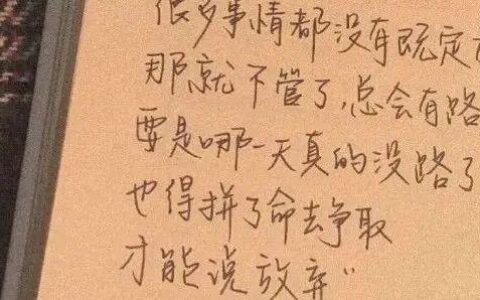 很多事情都没有既定
那就不管了,总会有路
要是哪一天真的没路了
也得拼了命去争取
才能说放弃"